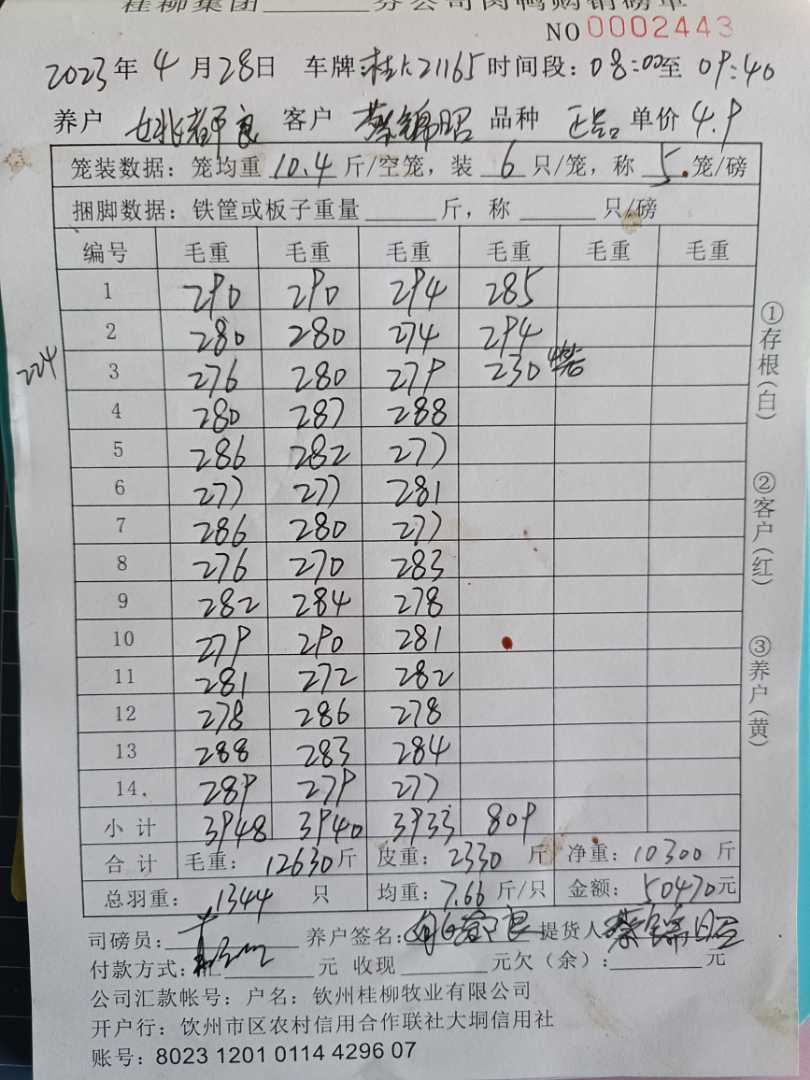 桂柳集团 分公司肉鸭购销磅单
NO 0002443
2023年 4月28日 车牌:桂A21165 时间段:08:00至 09:40
养户 姚都良 客户 蔡锦昭 品种 正品 单价 4.9
笼装数据:笼均重 10.4 斤/空笼,装 6 只/笼,称 5. 笼/磅
捆脚数据:铁筐或板子重量 斤,称 只/磅
编号 毛重 毛重 毛重 毛重 毛重 毛重
1 290 290 294 285
2 280 280 274 294
224 3 276 280 279 230 4笼
4 280 287 288
5 286 282 277
6 277 277 281
7 286 280 277
8 276 270 283
9 282 284 278
10 279 290 281
11 281 272 282
12 278 286 278
13 288 283 284
14. 289 279 277
小计 3948 3940 3933 809
合计 毛重:12630斤 皮重:2330 斤 净重:10300 斤
总羽重: 1344 只 均重:7.66 斤/只 金额:50470元
司磅员: 养户签名: 提货人 蔡锦昭
付款方式:汇 元 收现 元欠(余): 元
公司汇款帐号:户名:钦州桂柳牧业有限公司
开户行:钦州市区农村信用合作联社大垌信用社
账号:8023 1201 0114 4296 07
①存根(白)
②客户(红)
③养户(黄)